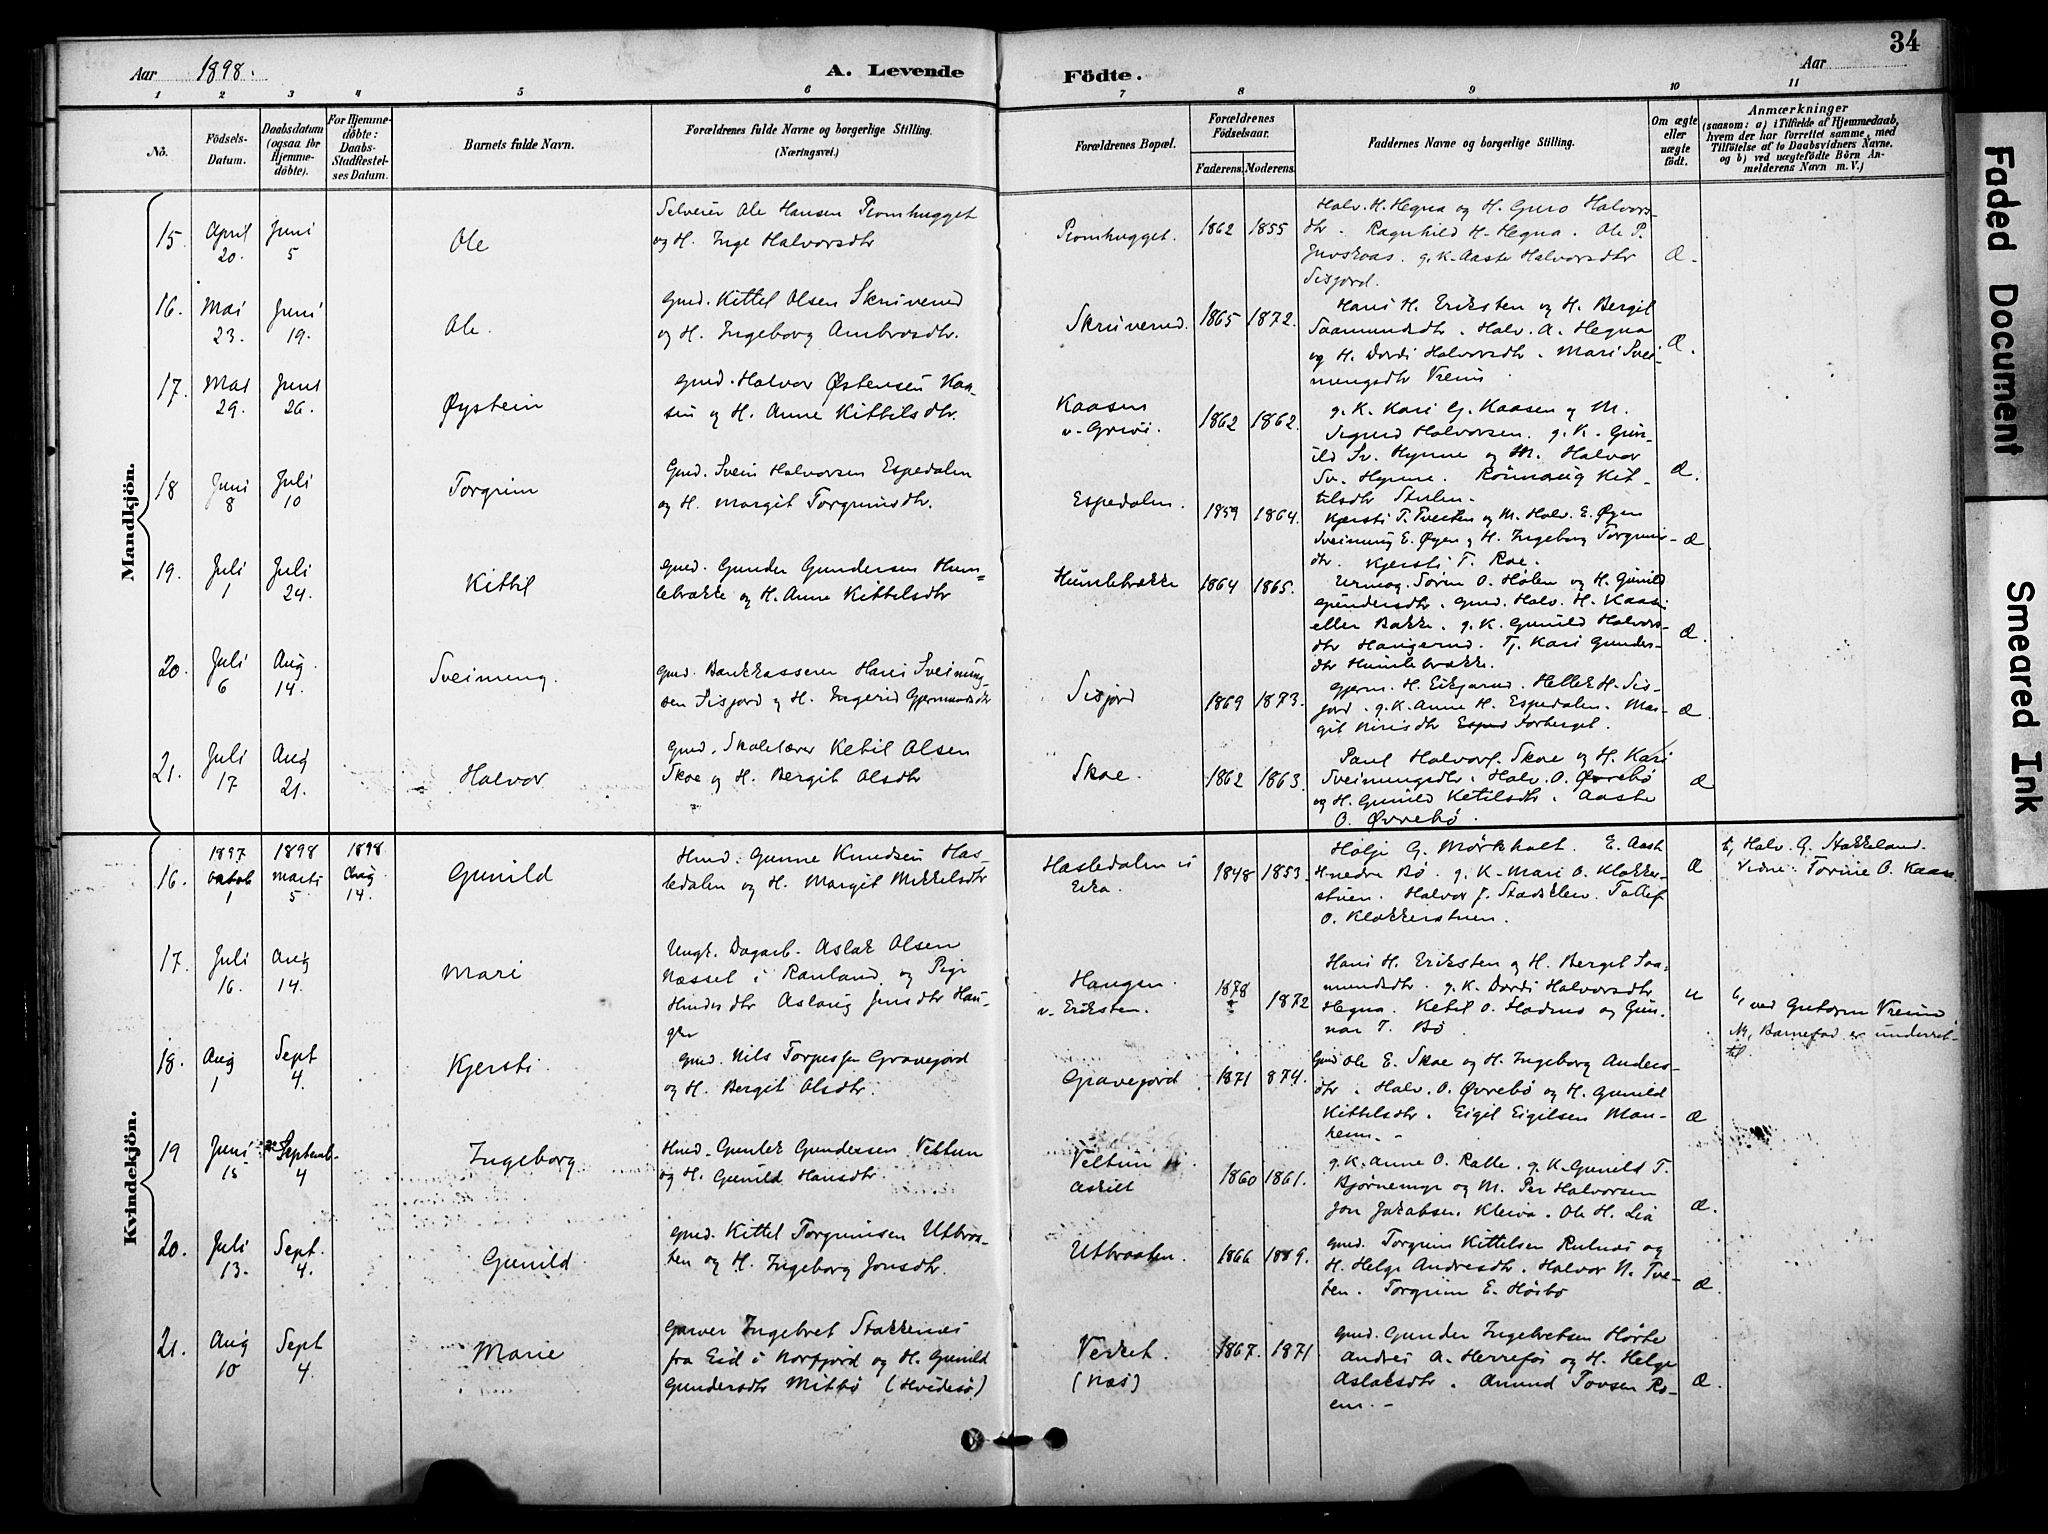 34
Aar 1898.
A. Levende Födte.
Aar
1 2 3 4 5 6 7 8 9 10 11
No.
Födsels-Datum.
Daabsdatum (ogsaa for Hjemme-döbte).
For Hjemme-döbte: Daabs-Stadfæstel-ses Datum.
Barnets fulde Navn.
Forældrenes fulde Navne og borgerlige Stilling. (Næringsvei.)
Forældrenes Bopæl.
Forældrenes Födselsaar.
Faderens. Moderens.
Faddernes Navne og borgerlige Stilling.
Om ægte eller uægte födt.
Anmærkninger
(saasom: a) i Tilfælde af Hjemmedaab, hvem der har forrettet samme, med Tilföielse af to Daabsvidners Navne. og b) ved uægtefödte Börn An-melderens Navn m. V.)
Mandkjön.
15. April 20. Juni 5 Ole
Selveier Ole Hansen Romhugget
og H. Inge Halvorsdtr
Romhugget. 1862 1855
Halv. H. Hegna og H. Guro Halvors-
dtr. Ragnhild H. Hegna. Ole P.
Juvskaas. g. K. Aaste Halvorsdtr
Sisjord.
Æ.
16. Mai 23. Juni 19. Ole.
Gmd. Kittel Olsen Skruverud
og H. Ingeborg Ambrosdtr.
Skruverud. 1865 1872.
Hans H. Eriksten og H. Bergit
Saamundsdtr. Halv. A. Hegna
og H. Dordi Halvorsdtr. Mari Svei-
nungsdtr Vreim.
Æ.
17. Mai 29. Juni 26. Øystein
Gmd. Halvor Østensen Kaa-
sen og H. Anne Kittelsdtr.
Kaasen
v. Grivi. 1862 1862.
g. K. Kari G. Kaasen og M.
Sigurd Halvorsen. g. K. Gun-
ild Sv. Hynne og M. Halvor
Sv. Hynne. Rønnaug Kit-
tilsdtr Stulen.
Æ.
18 Juni 8 Juli 10 Torgrim
Gmd. Svein Halvorsen Espedalen
og H. Margit Torgrimsdtr.
Espedalen. 1859 1864.
Kjersti T. Tveiten og M. Halv. E. Øygen
Sveinung E. Øygen og H. Ingeborg Torgrims-
dtr. Kjersti T. Roe.
Æ.
19. Juli 1 Juli 24. Kittil
Gmd. Gunder Gundersen Hum-
lebrække og H. Anne Kittelsdtr
Humlebrække 1864 1865.
Urmag. Søren O. Holen og H. Gunild
Gundersdtr. Gmd. Halv. H. Kaasi
eller Bakke. g. K. Gunild Halvors-
dtr Haugerud. Tj. Kari Gunders-
dtr Humlebrække.
Æ.
20. Juli 6 Aug. 14. Sveinung.
Gmd. Bankkasserer Hans Sveinung-
sen Sisjord og H. Ingerid Gjermundsdtr
Sisjord 1869 1873.
Gjerm. H. Eikjarud. Hellek H. Sis-
jord. g. K. Anne H. Espedalen. Mar-
git Nirisdtr Forberget.
Æ.
21. Juli 17 Aug 21. Halvor
Gmd. Skolelærer Ketil Olsen
Skoe og H. Bergit Olsdtr
Skoe. 1862 1863.
Paul Halvors. Skoe og H. Kari
Sveinungsdtr. Halv. O. Øvrebø
og H. Gunild Ketilsdtr. Aaste
O. Øvrebø.
Æ
Kvindekjön.
16. 1897 octob 1 1898 marts 5 1898 Aug 14. Gunild
Hmd. Gunne Knudsen Has-
ledalen og H. Margit Mikkelsdtr
Hasledalen i
Eika. 1848 1853.
Holje G. Mørkholt. E. Aaste
Hnedre Bø. g. K. Mari O. Klokker-
stuen. Halvor J. Stadsklev. Tallef
O. Klokkerstuen.
Æ
tj. Halv. G. Stakkeland.
Vidne: Torine O. Kaasa.
17. Juli 16. Aug 14. Mari
Ungk. Dagarb. Aslak Olsen
Næsset i Rauland og Pige
Husdtr Aslaug Jensdtr Hau-
gen
Haugen.
v. Eriksten. 1878 1872
Hans H. Eriksten og H. Bergit Saa-
mundsdtr. g. K. Dordi Halvorsdtr
Hegna. Ketil O. Hadnes og Gun-
nar T. Bø.
u
ved Gutorm Vreim.
M, Barnefad. er underret-
til.
18. Aug 1 Sept 4. Kjersti
Gmd. Nils Torgessen Gravejord
og H. Bergit Olsdtr.
Gravejord 1871 874.
Gmd Ole E. Skoe og H. Ingeborg Anders-
dtr. Halv. O. Øvrebø og H. Gunild
Kittelsdtr. Eigil Eigilsen Man-
heim.-
Æ
19 Juni 15 Septemb. 4 Ingeborg
Hmd. Gunlek Gundersen Veltun
og H. Gunild Hansdtr.
Veltun
1860 1861.
g. K. Anne O. Ralle. g. K. Gunild T.
Bjørnemyr og M. Per Halvorsen
Jon Jakobsen Kleiva. Ole H. Lia
Æ.
20. Juli 13. Sept. 4. Gunild
Gmd. Kittel Torgrimsen Utbraa-
ten og H. Ingeborg Jonsdtr.
Utbraaten. 1866 1889.
Gmd. Torgrim Kittelsen Rulnæs og
H. Helge Andresdtr. Halvor N. Tve-
ten. Torgrim E. Høibø
Æ.
21. Aug 10 Sept 4. Marie
Garver Ingebret Stakkenæs
fra Eid i Norfjord og H. Gunild
Gundersdtr Mittbø (Hvidesø)
Verket.
(Næs) 1867. 1871
Gmd. Gunder Ingebretsen Hørte
Andres A. Herrefos og H. Helge
Aslaksdtr. Amund Tovsen Ro-
em.-
Æ.
Faded Document
Smeared Ink